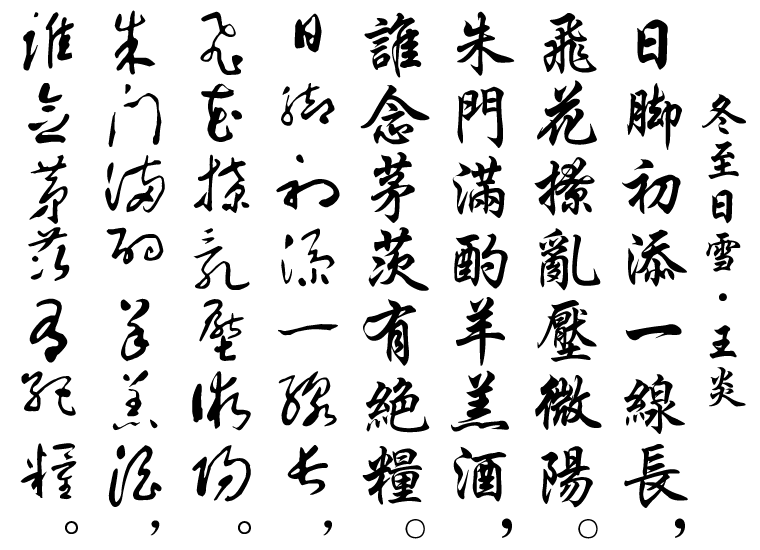 冬至日雪·王炎
日脚初添一線長，
飛花撩亂壓微陽。
朱門滿酌羊羔酒，
誰念茅茨有絕糧。
日脚初添一線長，
飛花撩亂壓微陽。
朱門滿酌羊羔酒，
誰念茅茨有絕糧。